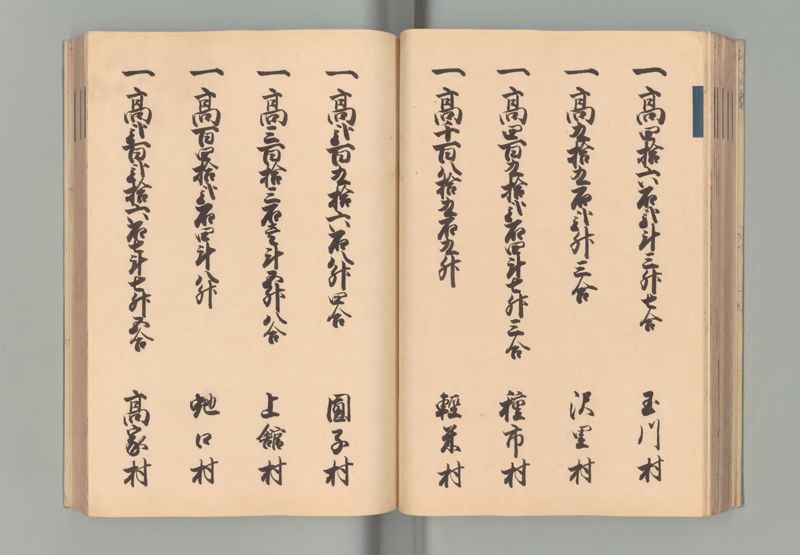 一 高四拾六石弐斗三升七合 玉川村
一 高九拾九石弐升三合 沢里村
一 高四百九拾弐石四斗七升三合 種市村
一 高千百八拾九石九升 輕米村
一 高弐百九拾六石八升四合 圓子村
一 高三百拾三石壱斗五升八合 上舘村
一 高百四拾弐石四斗八升 蛇口村
一 高弐百弐拾六石七斗七升五合 高家村